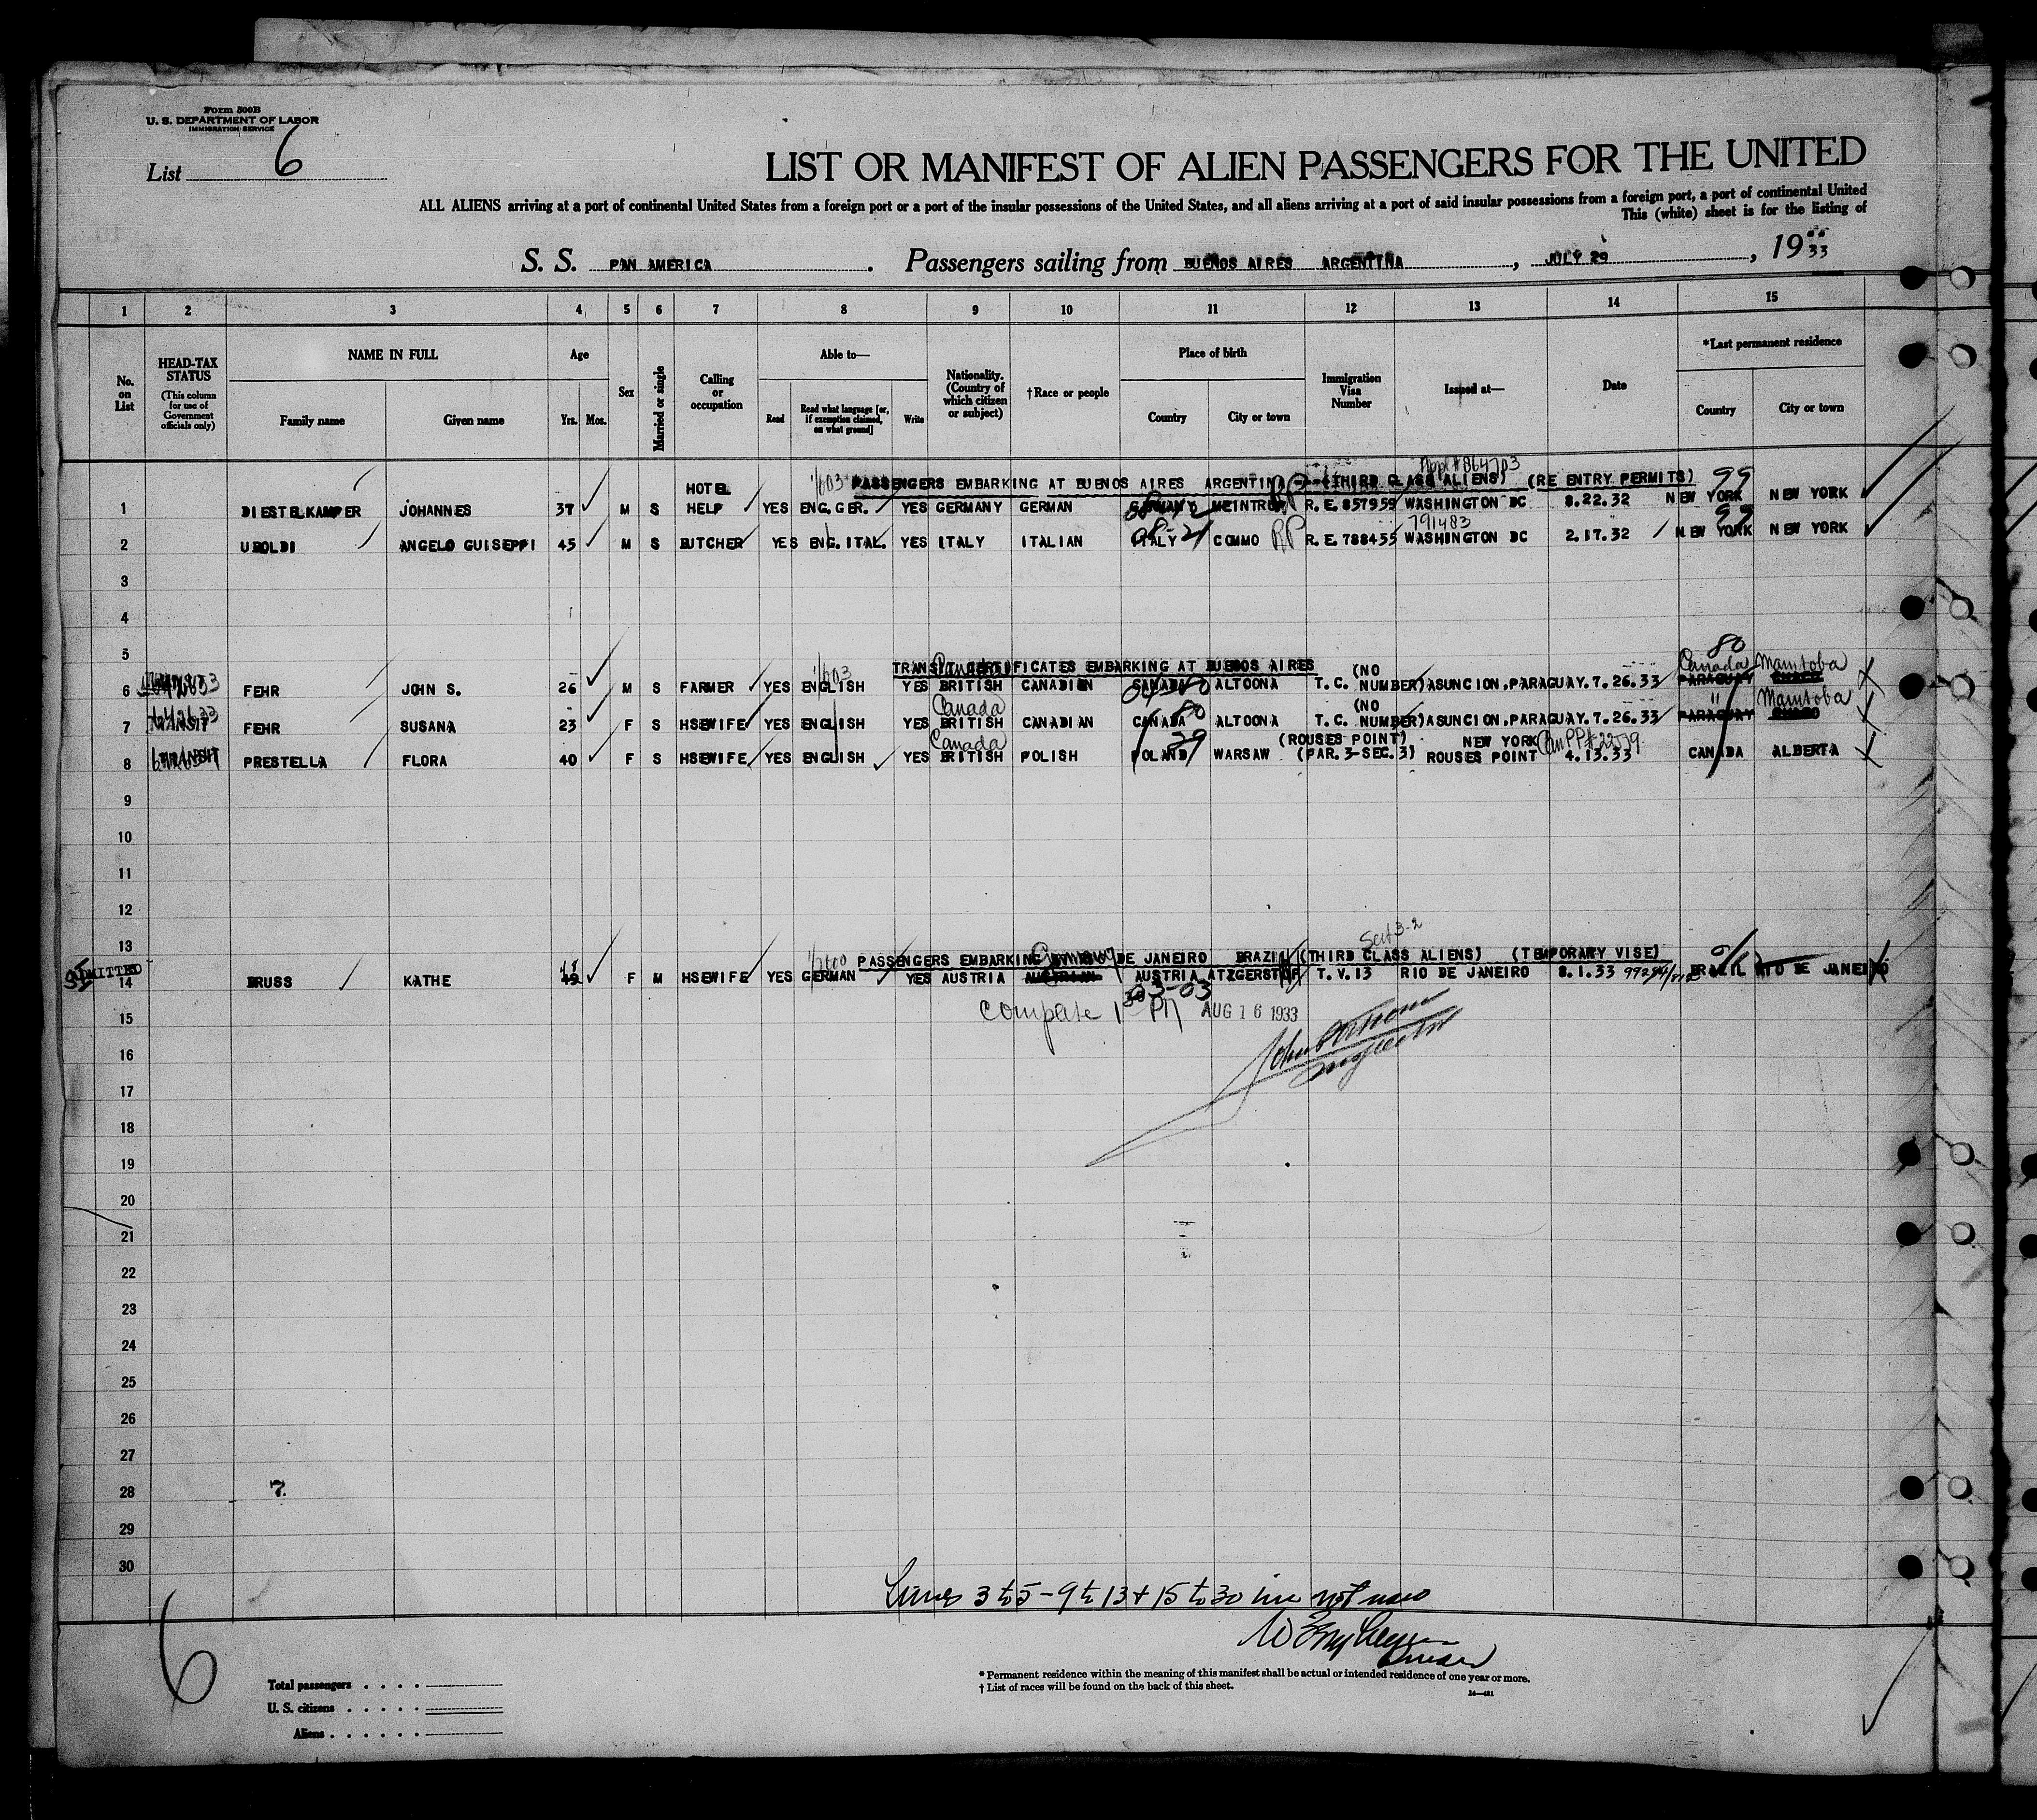 Form 500B
U. S. DEPARTMENT OF LABOR
IMMIGRATION SERVICE
List 6
LIST OR MANIFEST OF ALIEN PASSENGERS FOR THE UNITED
ALL ALIENS arriving at a port of continental United States from a foreign port or a port of the insular possessions of the United States, and all aliens arriving at a port of said insular possessions from a foreign port, a port of continental United
This (white) sheet is for the listing of
S. S. PAN AMERICA. Passengers sailing from BUENOS AIRES ARGENTINA, JULY 29, 1933
1 2 3 4 5 6 7 8 9 10 11 12 13 14 15
No. on List
HEAD-TAX STATUS (This column for use of Government officials only)
NAME IN FULL Family name Given name
Age Yrs. Mos.
Sex
Married or single
Calling or occupation
Able to— Read Read what language [or, if exemption claimed, on what ground] Write
Nationality. (Country of which citizen or subject)
†Race or people
Place of birth Country City or town
Immigration Visa Number
Issued at—
Date
*Last permanent residence Country City or town
Appl # 864703
PASSENGERS EMBARKING AT BUENOS AIRES ARGENTINA (THIRD CLASS ALIENS) (RE ENTRY PERMITS) 99
1 DIESTELKAMPER JOHANNES 37 M S HOTEL HELP YES ENG.GER. YES GERMANY GERMAN GERMANY MEINTROP R.E.857959 WASHINGTON DC 8.22.32 NEW YORK NEW YORK
791483 99
2 UBOLDI ANGELO GUISEPPI 45 M S BUTCHER YES ENG.ITAL. YES ITALY ITALIAN ITALY COMMO RP R.E.788455 WASHINGTON DC 2.17.32 NEW YORK NEW YORK
3
4
5
80
TRANSIT CERTIFICATES EMBARKING AT BUENOS AIRES
Canada Canada Manitoba
6 FEHR JOHN S. 26 M S FARMER YES ENGLISH YES BRITISH CANADIEN CANADA ALTOONA T.C. (NO NUMBER) ASUNCION, PARAGUAY. 7.26.33 PARAGUAY CHACO
Canada " Manitoba
7 TRANSIT FEHR SUSANA 23 F S HSEWIFE YES ENGLISH YES BRITISH CANADIAN CANADA ALTOONA T.C. (NO NUMBER) ASUNCION, PARAGUAY. 7.26.33 PARAGUAY CHACO
Canada (ROUSES POINT) NEW YORK
8 TRANSIT PRESTELLA FLORA 40 F S HSEWIFE YES ENGLISH YES BRITISH POLISH POLAND WARSAW (PAR. 3-SEC. 3) ROUSES POINT 4.13.33 CANADA ALBERTA
9
10
11
12
13
Sect 3-2
PASSENGERS EMBARKING DE JANEIRO BRAZIL (THIRD CLASS ALIENS) (TEMPORARY VISE)
ADMITTED
14 BRUSS KATHE 49 F M HSEWIFE YES GERMAN YES AUSTRIA AUSTRIAN AUSTRIA ATZGERSTOF T.V.13 RIO DE JANEIRO 8.1.33 BRAZIL RIO DE JANEIRO
03-03
AUG 16 1933
15
16
17
18
19
20
21
22
23
24
25
26
27
28 7
29
30
Lines 3 to 5 - 9 to 13 + 15 to 30 inc not used
6
Total passengers
U. S. citizens
Aliens
* Permanent residence within the meaning of this manifest shall be actual or intended residence of one year or more.
† List of races will be found on the back of this sheet.